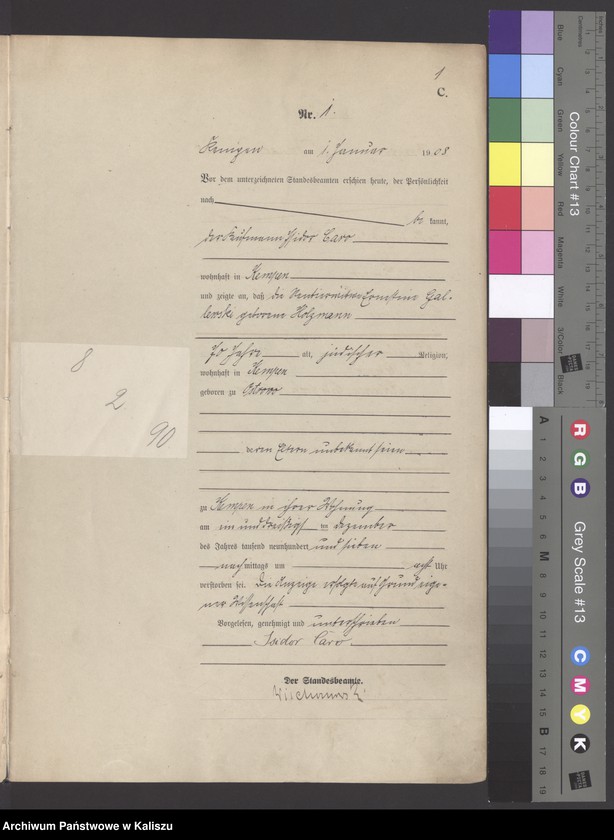 1
C.
Nr. 1.
Kempen am 1. Januar 1908
Vor dem unterzeichneten Standesbeamten erschien heute, der Persönlichkeit
nach
be kannt,
der Kaufmann Isidor Caro
wohnhaft in Kempen
und zeigte an, daß die Rentierwitwe Ernestine Gal-
lewski geborene Holzmann
70 Jahre alt, jüdischer Religion,
wohnhaft in Kempen
geboren zu Ostrowo
deren Eltern unbekannt seien
zu Kempen in ihrer Wohnung
am ein und dreißigsten Dezember
des Jahres tausend neunhundert und sieben
nachmittags um acht Uhr
verstorben sei. Die Anzeige erfolgte auf Grund eige-
ner Wissenschaft
Vorgelesen, genehmigt und unterschrieben
Isidor Caro
Der Standesbeamte.
8
2
90
Colour Chart #13
Blue
Cyan
Green
Yellow
Red
Magenta
White
3/Color
Black
Centimetres
Inches
Grey Scale #13
R
G
B
C
M
Y
K
A
1
2
3
4
5
6
M
8
9
10
11
12
13
14
15
B
17
18
19
Archiwum Państwowe w Kaliszu